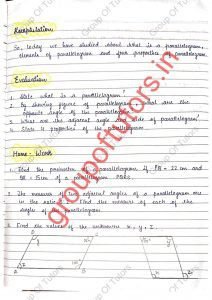 Recapitulation
So, today we have studied about what is a parallelogram,
elements of parallelogram and four properties of parallelogram.
Evaluation
1. State what is a parallelogram?
2. By showing figure of parallelogram, what are the
opposite angle of the parallelogram?
3. What are the adjacent angle of parallelogram?
4. State is properties of the parallelogram
Home-Work
1. Find the perimeter of a parallelogram if PQ = 22 cm and
QR = 5 cm of a parallelogram PQRS.
2. The measure of two adjacent angles of a parallelogram are
in the ratio Find the measure of each of the
angle of the parallelogram.
Find the values of the unknowns x, y, z.
groupoftutors.in